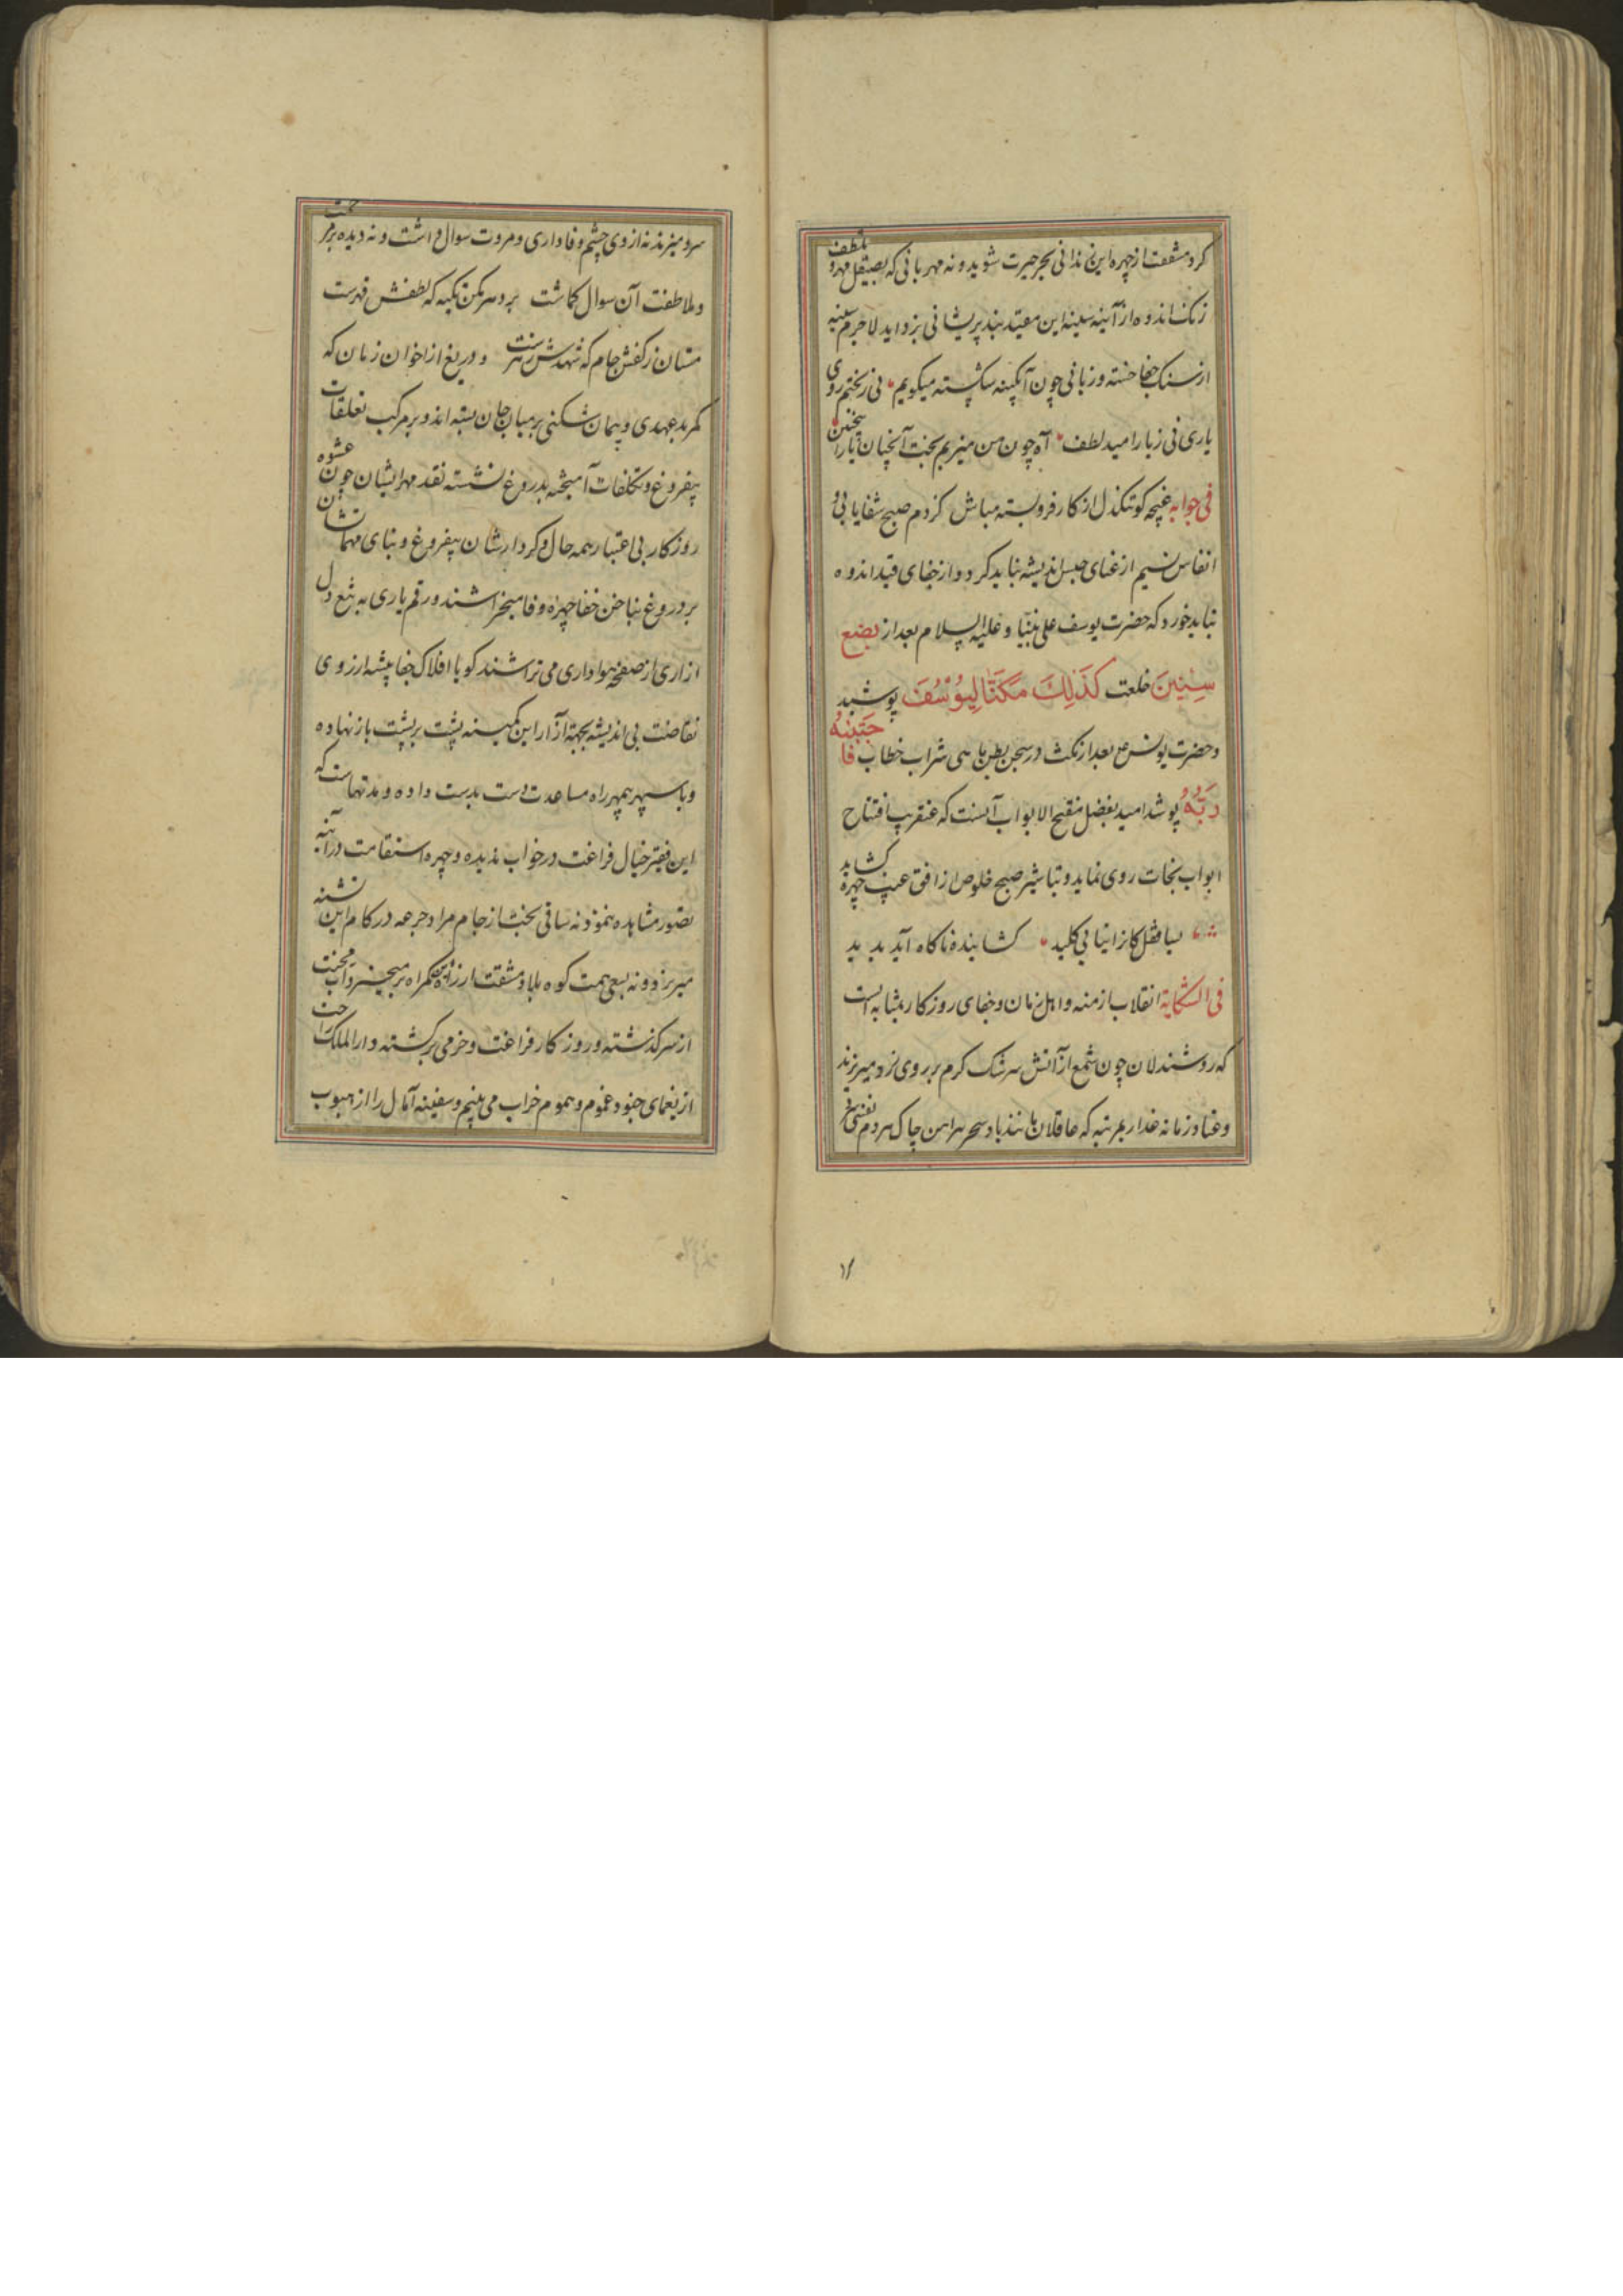 کرد مشقت از چهره این زندانی بحر حیرت شوید و نه مهربانی که بصیقل مهر و تلطف
زنک اندوه از آئینه سینه این مقید بند پریشانی بزداید لاجرم سینه
از سنک جفا خسته و زبانی چون آبکینه شکسته میکویم نی ز بختم روی
یاری نی ز یارامید لطف آه چون من میزیم بخت آنچنان یار اینچنین
فی جوابه غنچه کو تنکدل از کار فروبسته مباش کز دم صبح شفا یابی و
انفاس نسیم از عنای حبس اندیشه نباید کرد و از جفای قید اندوه
نباید خورد که حضرت یوسف علی نبینا و علیه السلام بعد از بضع
سِنِینَ خلعت کَذَلِكَ مَکَّنَّا لِیُوْسُفَ پوشید
و حضرت یونس ع بعد از مکث در سجن بطن ماهی شراب خطاب فَاجْتَبٰهُ
رَبُّهُ پوشد امید بفضل مفتح الابواب آنست که عنقریب افتتاح
ابواب نجات روی نماید و تباشیر صبح خلوص از افق غیب چهره کشاید
بسا قفل کانرا نیابی کلید کشاینده ناکاه آید پدید
فی الشکایة انقلاب ازمنه و اهل زمان و جفای روزکار بمثابه ایست
که روشندلان چون شمع از آتش سرشک کرم بر روی زرد میریزند
و عناد زمانه غدار بمرتبه که عاقلان مانند باد سحر پیراهن چاک هر دم نفسی
۱۶
سرد میزنند نه از وی چشم وفاداری و مروت سوال داشت و نه دیده بر مرحمت
و ملاطفت آن سوال کماشت برو سر مکن تکیه که لطفش قهرست
مستان ز کفش جام که شهدش زهرست و دریغ از اخوان زمان که
کمر بدعهدی و پیمان شکنی بر میان جان بسته اند و بر مرکب تعلقات
بیفروغ و تکلفات آمیخته بدروغ نشسته نقد مهر ایشان چون عشوه
روزکار بی اعتبار همه حال و کردارشان بیفروغ و بنای مهماتشان
بر دروغ بناخن جفا چهره وفا میخراشند و رقم یاری به تیغ دل
ازاری از صفحه هواداری می تراشند کویا افلاک جفا پیشه ارزوی
بی اندیشه بجهة آزار این کمینه پشت بر پشت باز نهاده
و با سپهر بمهر راه مساعدت دست بدست داده و مدتهاست که
این فقیر خیال فراغت در خواب ندیده و چهره استقامت در آئینه
تصور مشاهده ننموده نه ساقی بخت از جام مراد جرعه در کام این تشنه
میریزد و نه بسعی همت کوه بلا و مشقت از راه این کمراه بر میخیزد آب محنت
از سر کذشته و روزکار فراغت و خرمی برکشته دار الملک راحت
از یغمای جنود غموم و هموم خراب می بینم و سفینه آمال را از هبوب